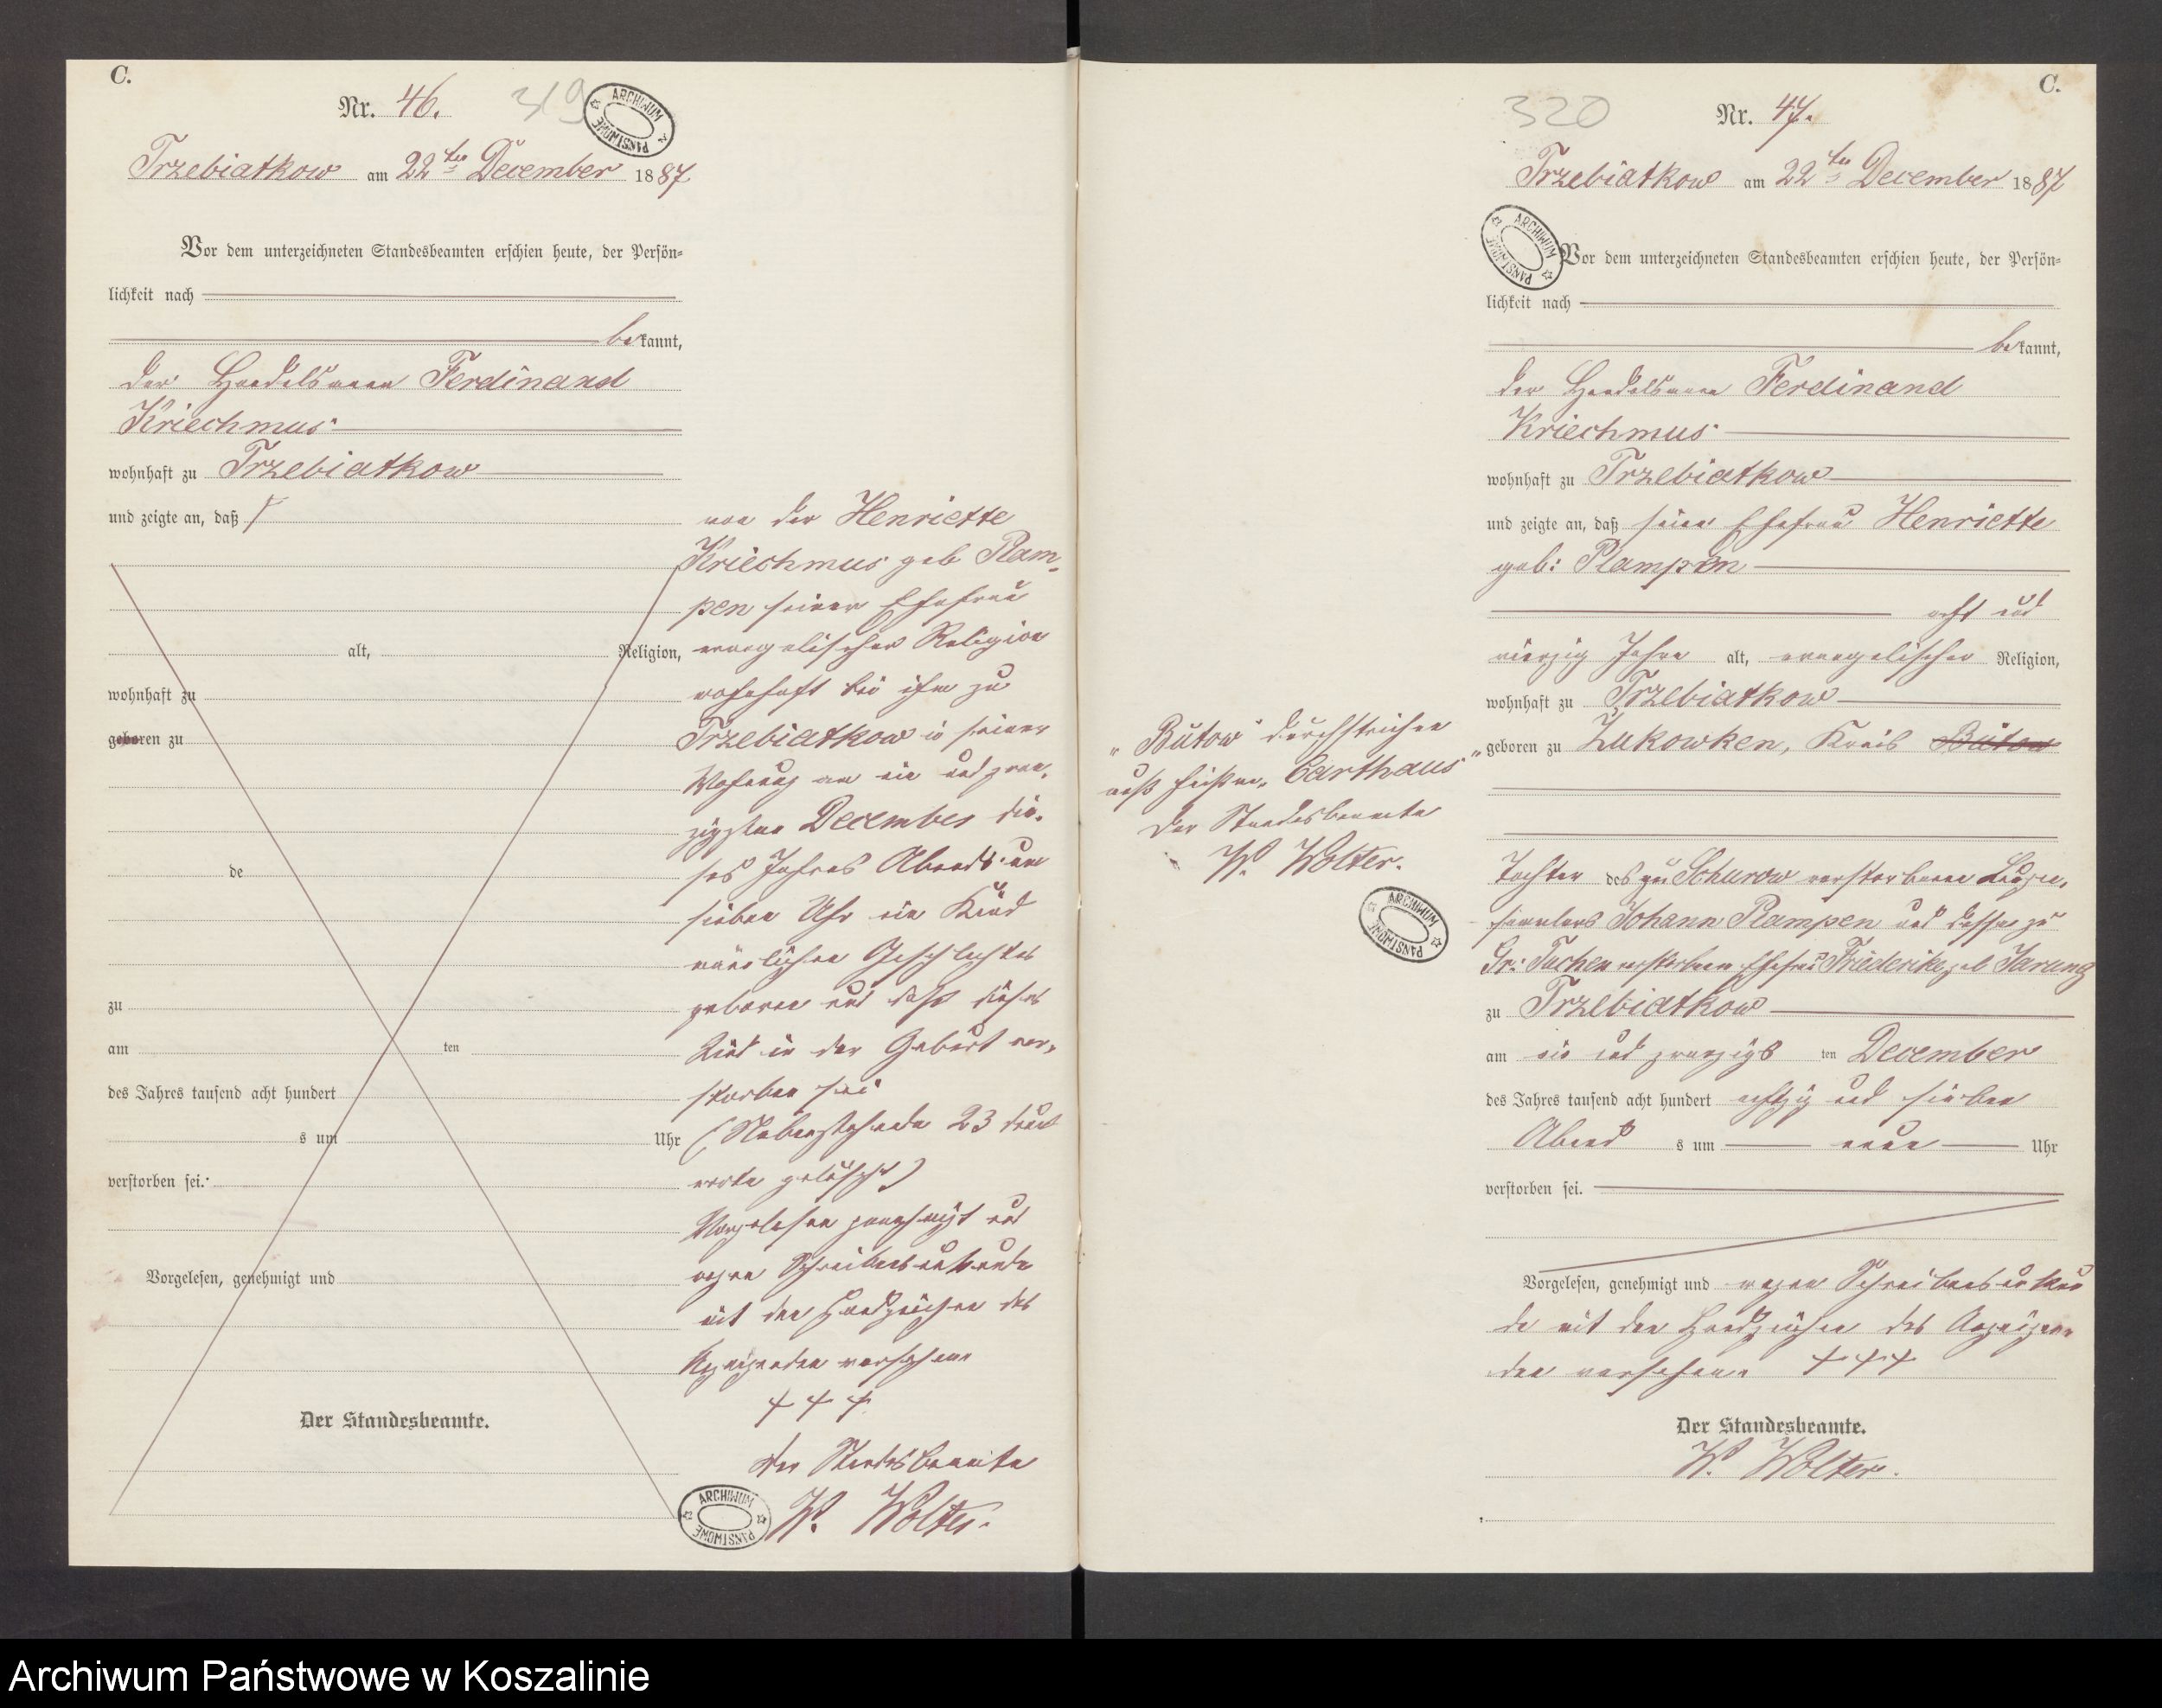 C.
Nr. 46. 319
ARCHIWUM PAŃSTWOWE
Trzebiatkow am 22ten December 1887
Vor dem unterzeichneten Standesbeamten erschien heute, der Persön-
lichkeit nach
bekannt,
der Handelsmann Ferdinand
Kriechmus
wohnhaft zu Trzebiatkow
und zeigte an, daß
alt, Religion,
wohnhaft zu
geboren zu
de
zu
am ten
des Jahres tausend acht hundert
s um Uhr
verstorben sei.
Vorgelesen, genehmigt und
Der Standesbeamte.
von der Henriette
Kriechmus geb Plam-
pen seiner Ehefrau
evangelischer Religion
wohnhaft bei ihm zu
Trzebiatkow in seiner
Wohnung am ein und zwan-
zigsten December die-
ses Jahres Abends um
sieben Uhr ein Kind
männlichen Geschlechtes
geboren und daß dieses
Kind in der Geburt ver-
storben sei
(Nebenstehende 23 Druck
worte gelöscht)
Vorgelesen genehmigt und
wegen Schreibensunkunde
mit den Handzeichen des
Anzeigenden versehen
+ + +
Der Standesbeamte
W. Wolter.
ARCHIWUM PAŃSTWOWE
C.
320 Nr. 47.
Trzebiatkow am 22ten December 1887
ARCHIWUM PAŃSTWOWE
Vor dem unterzeichneten Standesbeamten erschien heute, der Persön-
lichkeit nach
bekannt,
der Handelsmann Ferdinand
Kriechmus
wohnhaft zu Trzebiatkow
und zeigte an, daß seine Ehefrau Henriette
geb: Plampen
acht und
vierzig Jahre alt, evangelischer Religion,
wohnhaft zu Trzebiatkow
geboren zu Zukowken, Kreis Bütow
"Bütow" durchstrichen
muß heißen "Carthaus"
Der Standesbeamte
W. Wolter.
ARCHIWUM PAŃSTWOWE
Tochter des zu Schurow verstorbenen
Johann Plampen und dessen zu
Gr: Tuchen verstorbenen Ehefrau Friederike geb
zu Trzebiatkow
am ein und zwanzigs ten December
des Jahres tausend acht hundert achtzig und sieben
Abend s um neun Uhr
verstorben sei.
Vorgelesen, genehmigt und wegen Schreibensunkun
de mit den Handzeichen des Anzeigen-
den versehen. + + +
Der Standesbeamte.
W. Wolter.
Archiwum Państwowe w Koszalinie